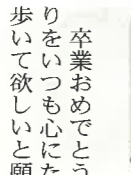 卒業おめでとう
りをいつも心にた
歩いて欲しいと願